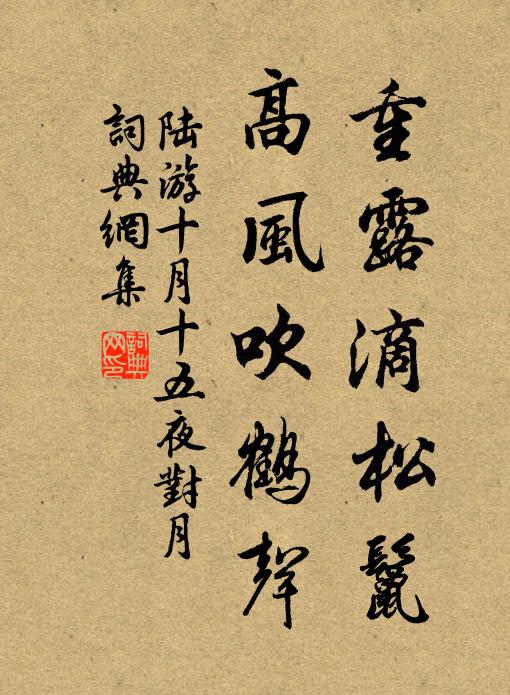 重露滴松鬣
高風吹鶴聲
陆游十月十五夜對月
詞典網集
詞典网印